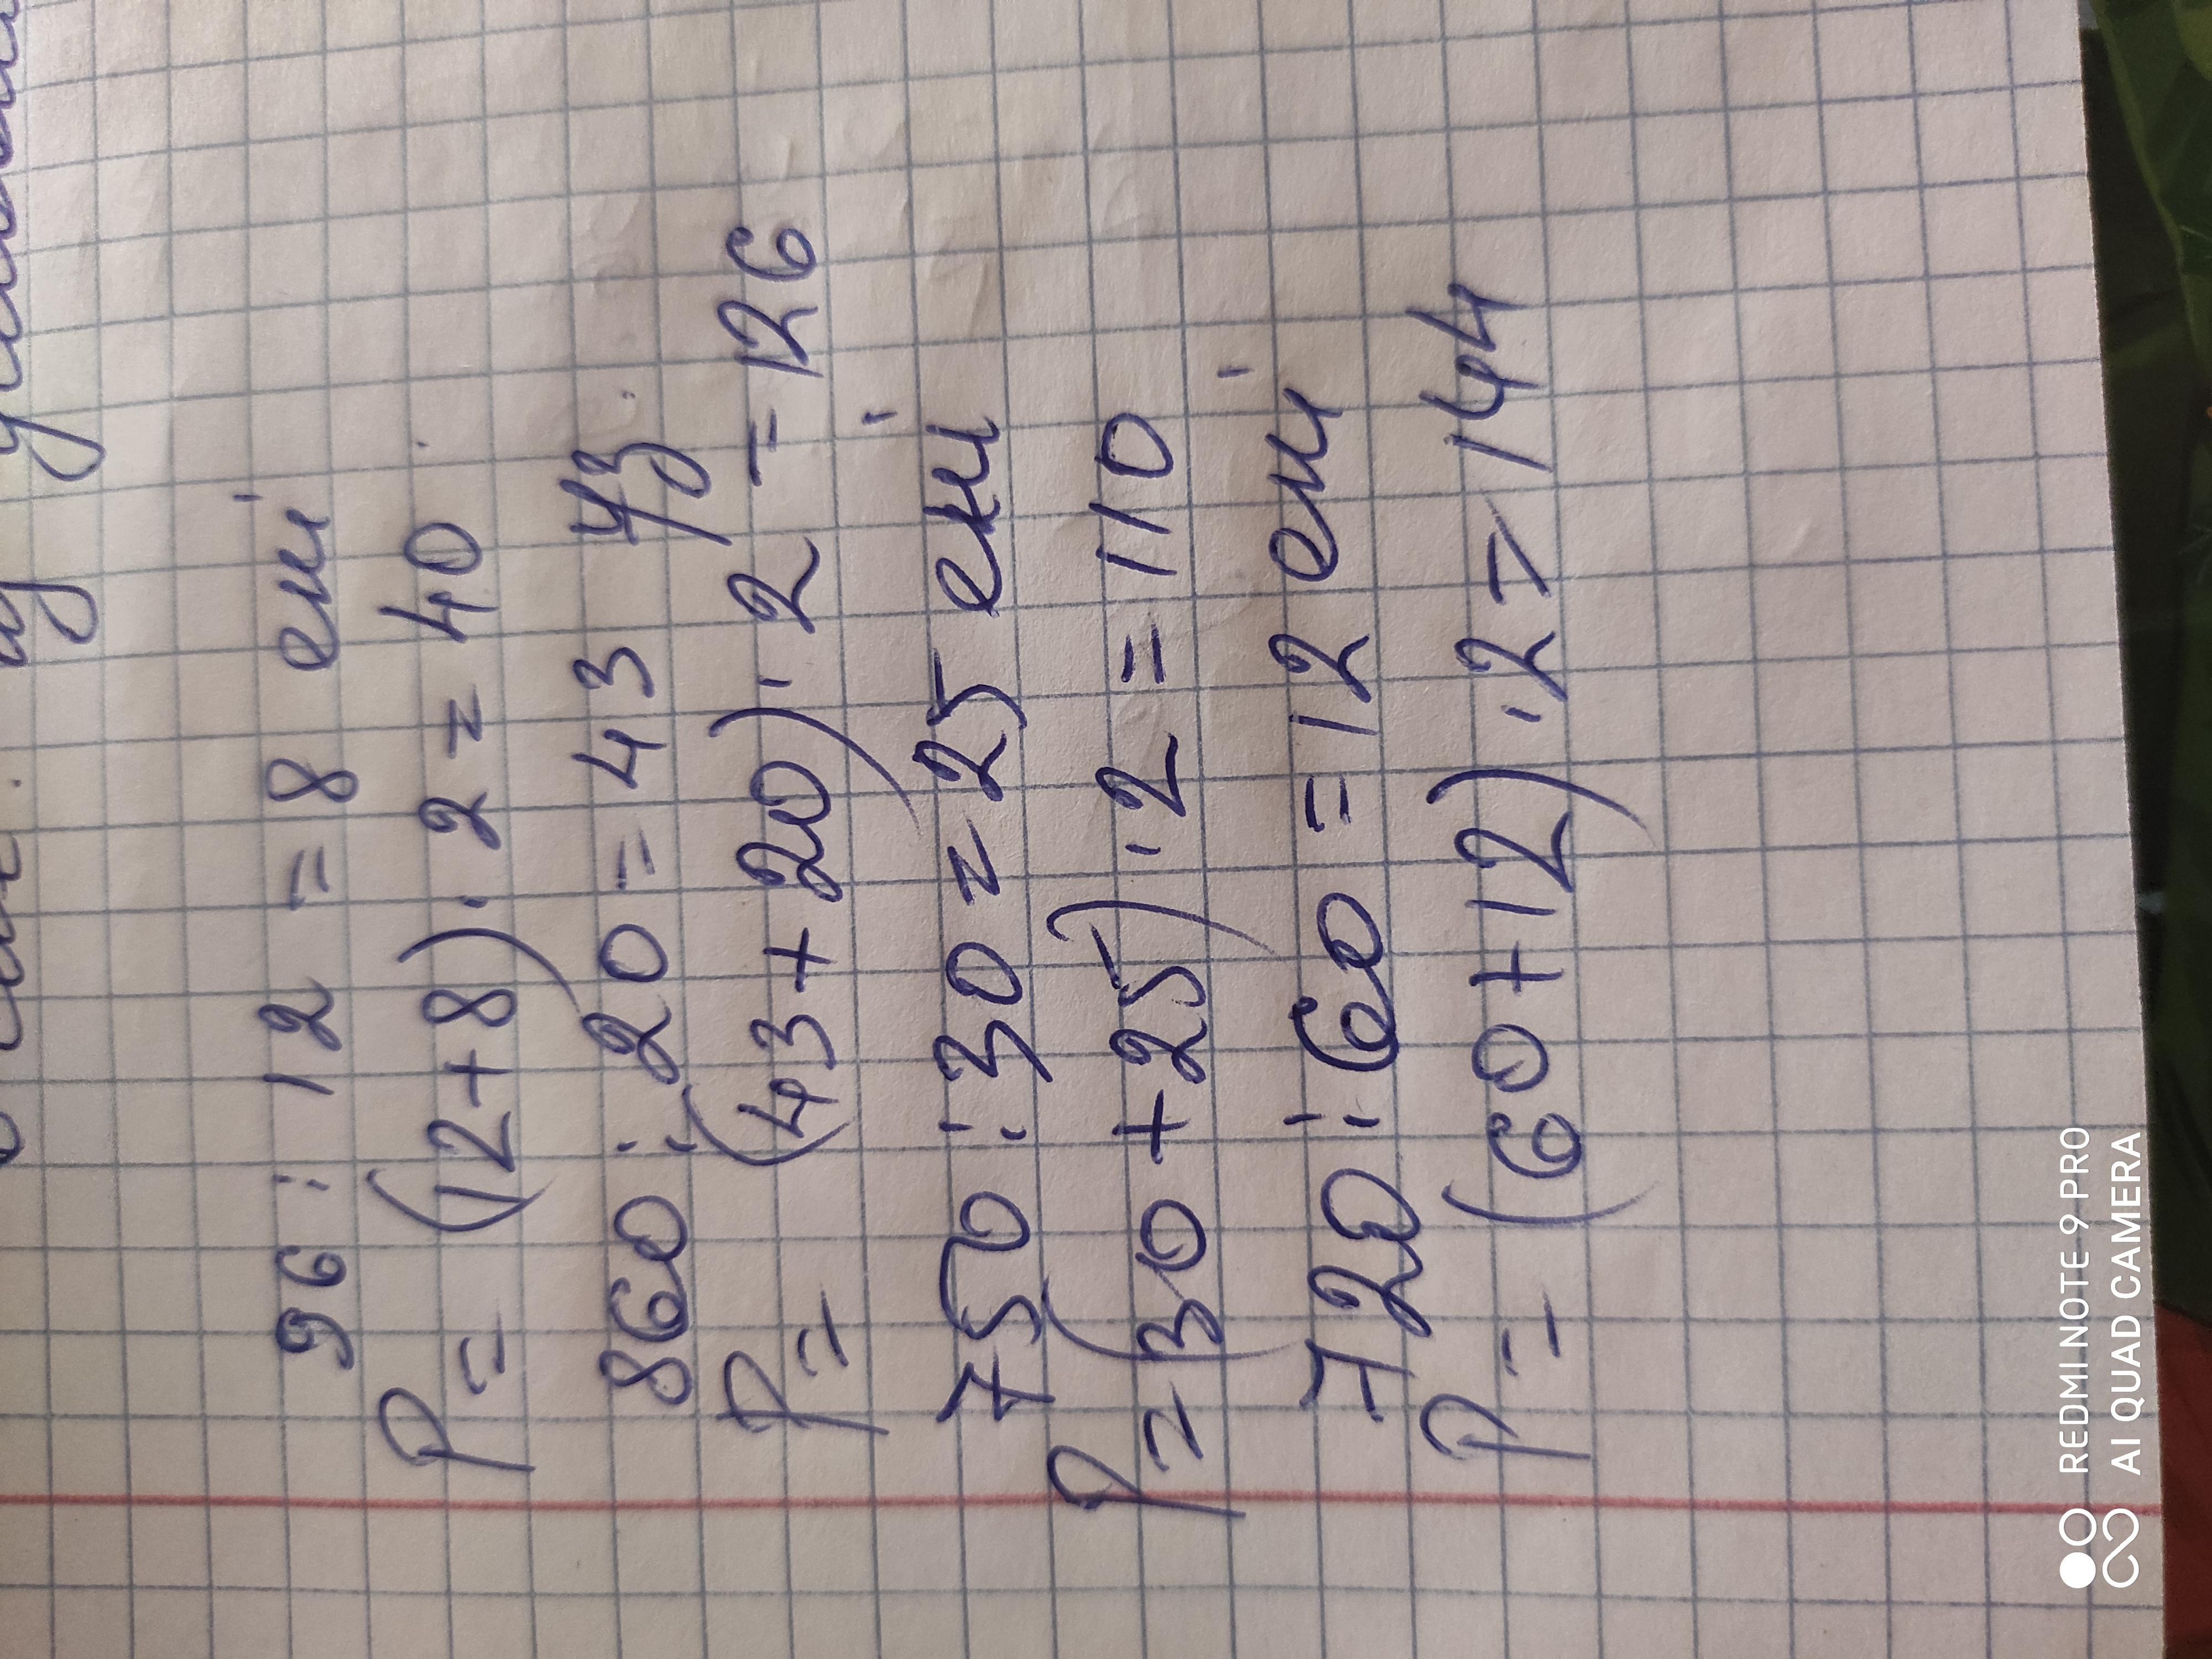 96 : 12 = 8 ені
P = (12 + 8) · 2 = 40
860 : 20 = 43 ұз
P = (43 + 20) · 2 = 126
750 : 30 = 25 ені
P = (30 + 25) · 2 = 110
720 : 60 = 12 ені
P = (60 + 12) · 2 = 144
REDMI NOTE 9 PRO
AI QUAD CAMERA